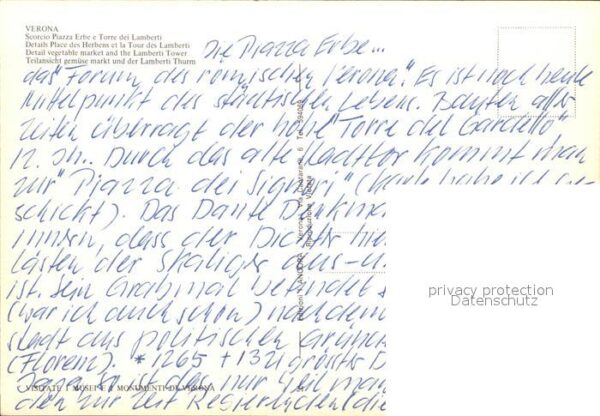 VERONA
Scorcio Piazza Erbe e Torre dei Lamberti
Details Place des Herbens et la Tour des Lamberti
Detail vegetable market and the Lamberti Tower
Teilansicht gemüse markt und der Lamberti Thurm
Die Piazza Erbe...
das "Forum des römischen Verona". Es ist noch heute
Mittelpunkt des städtischen Lebens. Bauten aller
Zeiten überragt der hohe "Torre del Gardello"
12. Jh. Durch das alte Stadttor kommt man
zur "Piazza dei Signori" (Karte habe ich ge-
schickt). Das Dante Denkma
innern, dass der Dichter hie
lästen der Skaliger aus-u
ist. Sein Grabmal befindet s
(war ich auch schon) nachdem
stadt aus politischen Gründ
(Florenz). * 1265 + 1321 grösster D
nur
den zur Zeit Regierlichen (die
VISITATE I MUSEI E I MONUMENTI DI VERONA
Verona
privacy protection
Datenschutz